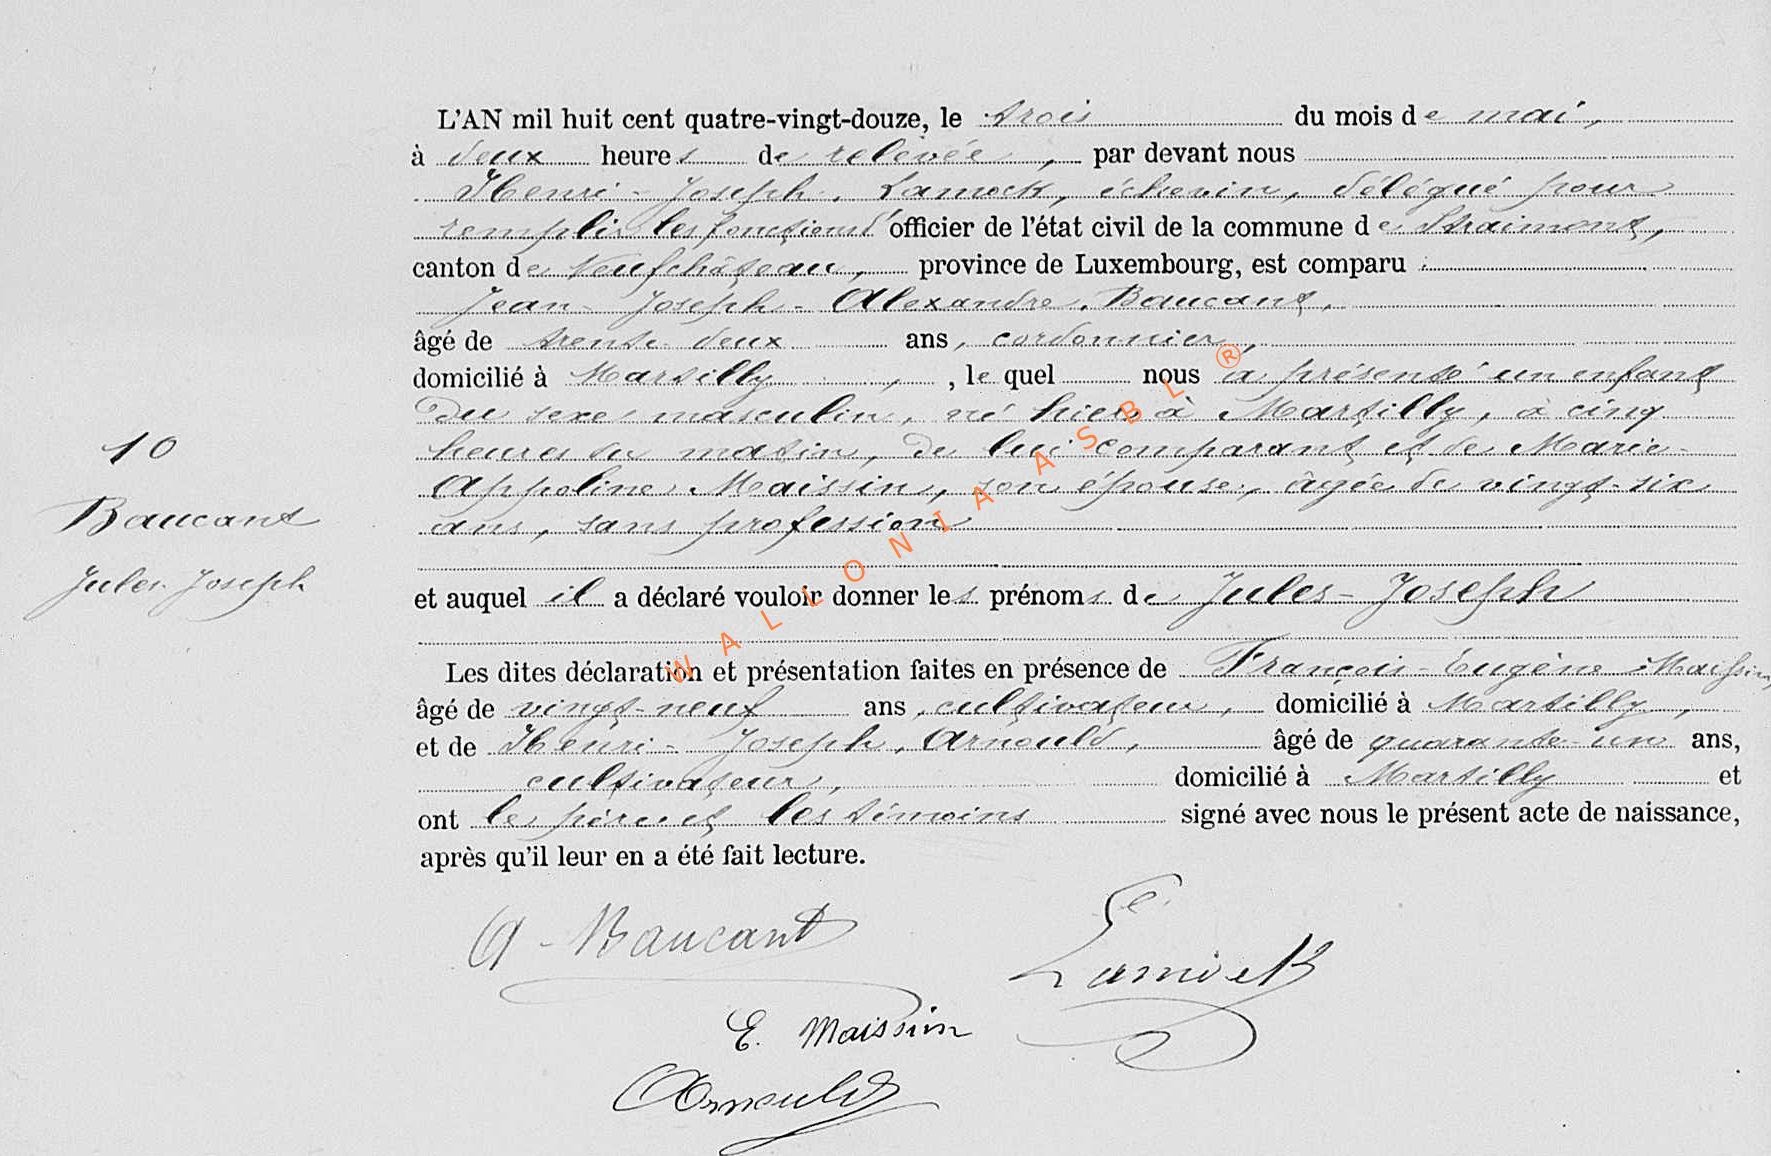 L'AN mil huit cent quatre-vingt-douze, le trois du mois de mai,
à deux heures de relevée, par devant nous
Henri-Joseph, Lamock, échevin, délégué pour
remplir les fonctions d'officier de l'état civil de la commune de Straimont,
canton de Neufchâteau, province de Luxembourg, est comparu :
Jean-Joseph-Alexandre, Baucant,
âgé de trente-deux ans, cordonnier,
domicilié à Martilly, , le quel nous a présenté un enfant
du sexe masculin, né hier à Martilly, à cinq
heures du matin, de lui comparant et de Marie-
10
Appoline Maissin, son épouse, âgée de vingt-six
Baucant
ans, sans profession
Jules-Joseph
et auquel il a déclaré vouloir donner les prénoms de Jules-Joseph
Les dites déclaration et présentation faites en présence de François-Eugène Maissin,
âgé de vingt-neuf ans, cultivateur, domicilié à Martilly,
et de Henri-Joseph, Arnould, âgé de quarante-un ans,
cultivateur, domicilié à Martilly et
ont le père et les témoins signé avec nous le présent acte de naissance,
après qu'il leur en a été fait lecture.
A-Baucant
E. Maissin
Arnould
WALLONIA ASBL ®